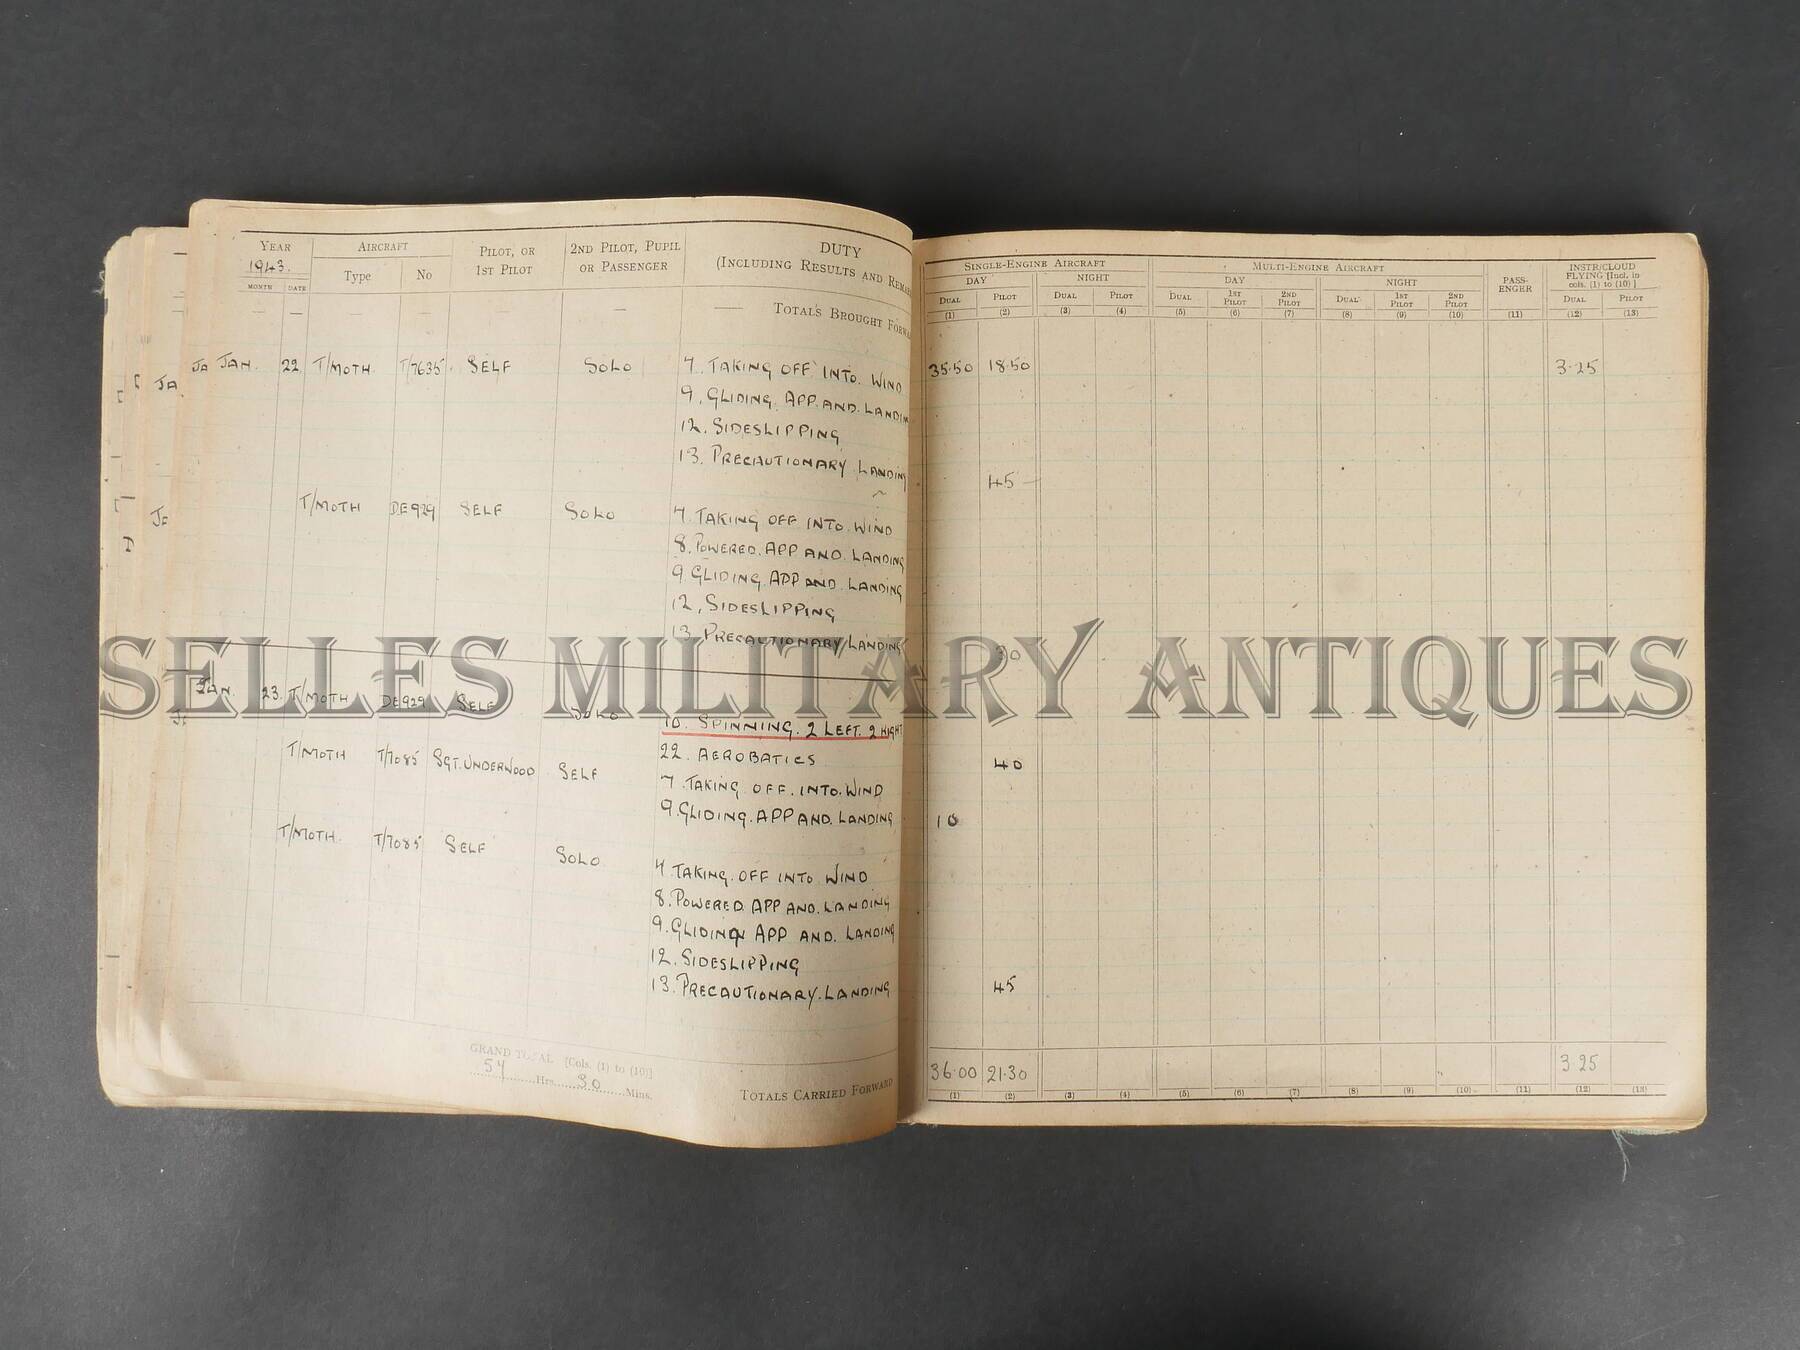 YEAR AIRCRAFT PILOT, OR 2ND PILOT, PUPIL DUTY
1943. Type No 1ST PILOT OR PASSENGER (INCLUDING RESULTS AND REMARKS
MONTH DATE
— — — — — — — TOTALS BROUGHT FORWA
JAN. 22 T/MOTH. T/7635. SELF SOLO 7. TAKING OFF INTO WIND
9. GLIDING. APP. AND. LANDIN
12. SIDESLIPPING
13. PRECAUTIONARY LANDING
T/MOTH DE929 SELF SOLO 7. TAKING OFF INTO. WIND
8. POWERED. APP AND. LANDING
9 GLIDING APP AND. LANDING
12. SIDESLIPPING
13. PRECAUTIONARY LANDING
JAN. 23. T/MOTH DE929 SELF SOLO 10. SPINNING. 2 LEFT. 2 RIGHT
22. AEROBATICS
T/MOTH T/7085 SGT. UNDERWOOD SELF 7. TAKING OFF. INTO. WIND
9. GLIDING. APP AND. LANDING
T/MOTH. T/7085 SELF SOLO 7. TAKING. OFF INTO WIND
8. POWERED APP AND. LANDING
9. GLIDING APP AND. LANDING
12. SIDESLIPPING
13. PRECAUTIONARY. LANDING
GRAND TOTAL [Cols. (1) to (10)]
57 Hrs. 30 Mins.
TOTALS CARRIED FORWARD
SINGLE-ENGINE AIRCRAFT MULTI-ENGINE AIRCRAFT PASS-ENGER INSTR/CLOUD FLYING [Incl. in cols. (1) to (10)]
DAY NIGHT DAY NIGHT
DUAL PILOT DUAL PILOT DUAL 1ST PILOT 2ND PILOT DUAL 1ST PILOT 2ND PILOT DUAL PILOT
(1) (2) (3) (4) (5) (6) (7) (8) (9) (10) (11) (12) (13)
35.50 18.50 3.25
45
30
40
10
45
36.00 21.30 3.25
(1) (2) (3) (4) (5) (6) (7) (8) (9) (10) (11) (12) (13)
SELLES MILITARY ANTIQUES